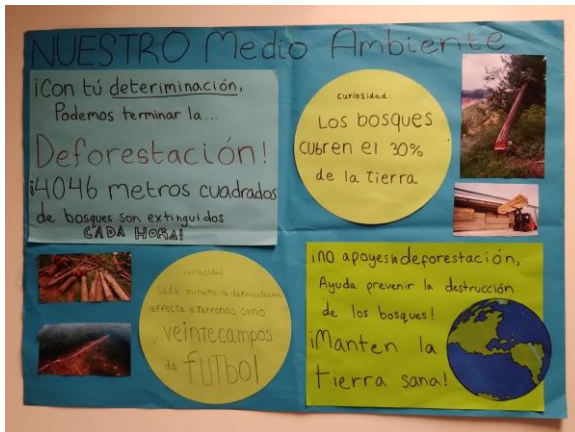 NUESTRO Medio Ambiente
¡Con tú deteriminación,
Podemos terminar la...
Deforestación!
¡4046 metros cuadrados
de bosques son extinguidos
CADA HORA!
Curiosidad:
Los bosques
cubren el 30%
de la Tierra
Curiosidad
Cada minuto la deforestacion
affecta a terrenos como
veinte campos
de fUTbol
¡No apoyes la deforestación,
Ayuda prevenir la destrucción
de los bosques!
¡Manten la
tierra sana!